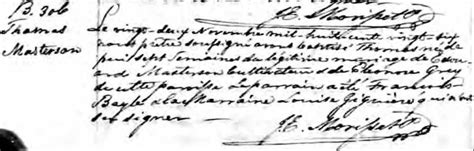 B. 306
Thomas
Masterson
Le vingt-deux Novembre mil-huit cent vingt-six
nous prêtre soussigné avons baptisé Thomas né de
puis sept semaines du légitime mariage de Edou
ard Masterson Cultivateur & de Eleonore Grey
de cette paroisse Le parrain a été Francois
Bayle et la Marraine Louise Giguière qui n'ont
su signer